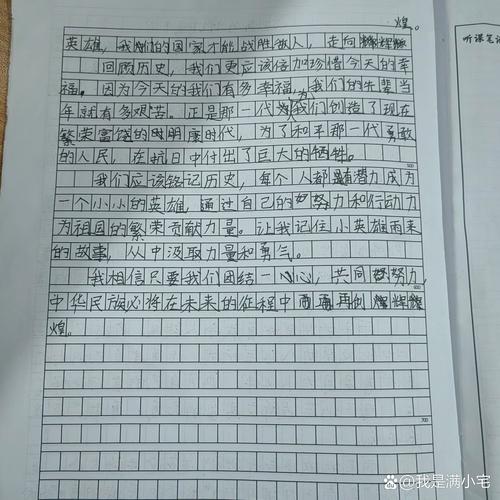 煌。
英雄，我们的国家才能战胜敌人，走向辉
回顾历史，我们更应该倍加珍惜今天的幸
福。因为今天的我们有多幸福，我们的先辈当
年就有多艰苦。正是那一代为我们创造了现在
繁荣富饶的时代，为了和平那一代勇敢
的人民，在抗日中付出了巨大的牺牲。
500
我们应该铭记历史，每个人都有潜力成为
一个小小的英雄，通过自己的努力和行动力
为祖国的繁荣贡献力量。让我记住小英雄雨来
的故事，从中汲取力量和勇气。
我相信只要我们团结一心，共同努力，
600
中华民族必将在未来的征程中再创辉
煌。
700
听课笔记
@我是满小宅